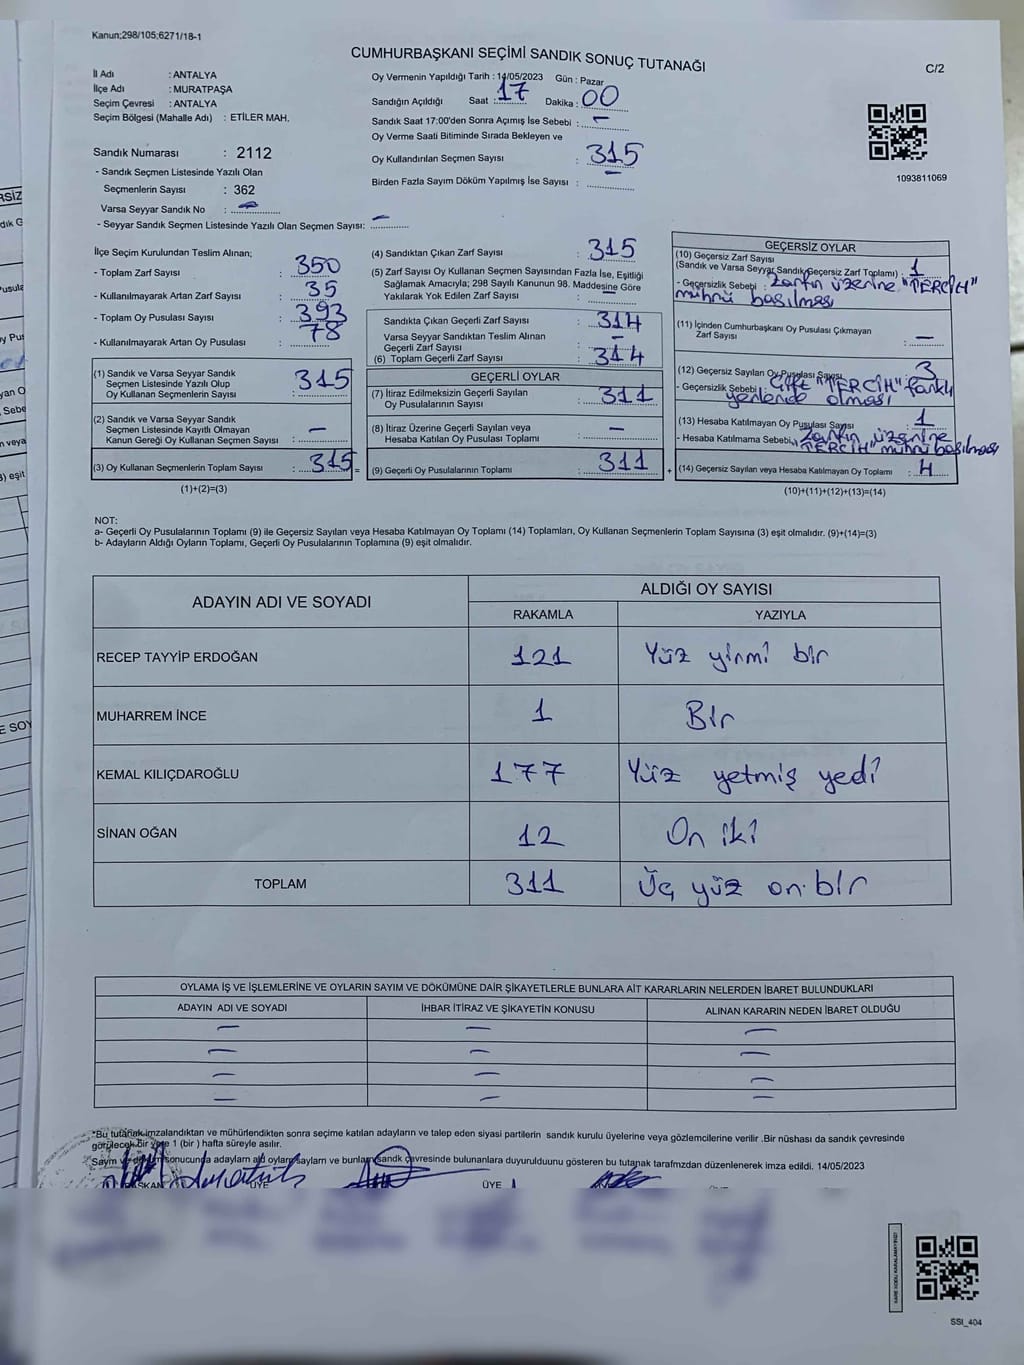 Kanun;298/105;6271/18-1
CUMHURBAŞKANI SEÇİMİ SANDIK SONUÇ TUTANAĞI
C/2
İl Adı : ANTALYA
İlçe Adı : MURATPAŞA
Seçim Çevresi : ANTALYA
Seçim Bölgesi (Mahalle Adı) : ETİLER MAH.
Sandık Numarası : 2112
- Sandık Seçmen Listesinde Yazılı Olan
Seçmenlerin Sayısı : 362
Varsa Seyyar Sandık No : –
- Seyyar Sandık Seçmen Listesinde Yazılı Olan Seçmen Sayısı: –
Oy Vermenin Yapıldığı Tarih : 14/05/2023 Gün : Pazar
Sandığın Açıldığı Saat : 17 Dakika : 00
Sandık Saat 17:00'den Sonra Açımış İse Sebebi : –
Oy Verme Saati Bitiminde Sırada Bekleyen ve
Oy Kullandırılan Seçmen Sayısı : 315
Birden Fazla Sayım Döküm Yapılmış İse Sayısı : –
1093811069
İlçe Seçim Kurulundan Teslim Alınan;
- Toplam Zarf Sayısı : 350
- Kullanılmayarak Artan Zarf Sayısı : 35
- Toplam Oy Pusulası Sayısı : 393
- Kullanılmayarak Artan Oy Pusulası : 78
(1) Sandık ve Varsa Seyyar Sandık
Seçmen Listesinde Yazılı Olup
Oy Kullanan Seçmenlerin Sayısı : 315
(2) Sandık ve Varsa Seyyar Sandık
Seçmen Listesinde Kayıtlı Olmayan
Kanun Gereği Oy Kullanan Seçmen Sayısı : –
(3) Oy Kullanan Seçmenlerin Toplam Sayısı : 315 =
(1)+(2)=(3)
(4) Sandıktan Çıkan Zarf Sayısı : 315
(5) Zarf Sayısı Oy Kullanan Seçmen Sayısından Fazla İse, Eşitliği
Sağlamak Amacıyla; 298 Sayılı Kanunun 98. Maddesine Göre
Yakılarak Yok Edilen Zarf Sayısı : –
Sandıkta Çıkan Geçerli Zarf Sayısı : 314
Varsa Seyyar Sandıktan Teslim Alınan
Geçerli Zarf Sayısı : –
(6) Toplam Geçerli Zarf Sayısı : 314
GEÇERLİ OYLAR
(7) İtiraz Edilmeksizin Geçerli Sayılan
Oy Pusulalarının Sayısı : 311
(8) İtiraz Üzerine Geçerli Sayılan veya
Hesaba Katılan Oy Pusulası Toplamı : –
(9) Geçerli Oy Pusulalarının Toplamı : 311 +
GEÇERSİZ OYLAR
(10) Geçersiz Zarf Sayısı
(Sandık ve Varsa Seyyar Sandık Geçersiz Zarf Toplamı) : 1
- Geçersizlik Sebebi : Zarfın üzerine "TERCİH"
mührü basılması
(11) İçinden Cumhurbaşkanı Oy Pusulası Çıkmayan
Zarf Sayısı : –
(12) Geçersiz Sayılan Oy Pusulası Sayısı 3
- Geçersizlik Sebebi : Çift "TERCİH" farklı
yerlerde olması
(13) Hesaba Katılmayan Oy Pusulası Sayısı : 1
- Hesaba Katılmama Sebebi : Zarfın üzerine
"TERCİH" mührü basılması
(14) Geçersiz Sayılan veya Hesaba Katılmayan Oy Toplamı : 4
(10)+(11)+(12)+(13)=(14)
NOT:
a- Geçerli Oy Pusulalarının Toplamı (9) ile Geçersiz Sayılan veya Hesaba Katılmayan Oy Toplamı (14) Toplamları, Oy Kullanan Seçmenlerin Toplam Sayısına (3) eşit olmalıdır. (9)+(14)=(3)
b- Adayların Aldığı Oyların Toplamı, Geçerli Oy Pusulalarının Toplamına (9) eşit olmalıdır.
ADAYIN ADI VE SOYADI
ALDIĞI OY SAYISI
RAKAMLA YAZIYLA
RECEP TAYYİP ERDOĞAN 121 Yüz yirmi bir
MUHARREM İNCE 1 Bir
KEMAL KILIÇDAROĞLU 177 Yüz yetmiş yedi
SİNAN OĞAN 12 On iki
TOPLAM 311 Üç yüz on bir
OYLAMA İŞ VE İŞLEMLERİNE VE OYLARIN SAYIM VE DÖKÜMÜNE DAİR ŞİKAYETLERLE BUNLARA AİT KARARLARIN NELERDEN İBARET BULUNDUKLARI
ADAYIN ADI VE SOYADI İHBAR İTİRAZ VE ŞİKAYETİN KONUSU ALINAN KARARIN NEDEN İBARET OLDUĞU
– – –
– – –
– – –
– – –
*Bu tutanak imzalandıktan ve mühürlendikten sonra seçime katılan adayların ve talep eden siyasi partilerin sandık kurulu üyelerine veya gözlemcilerine verilir .Bir nüshası da sandık çevresinde
görülecek bir yere 1 (bir ) hafta süreyle asılır.
Sayım ve döküm sonucunda adayların ald oyların sayların ve bunların sandk çavresinde bulunanlara duyurulduunu gösteren bu tutanak tarafmzdan düzenlenerek imza edildi. 14/05/2023
BAŞKAN ÜYE ÜYE
SSİ_404